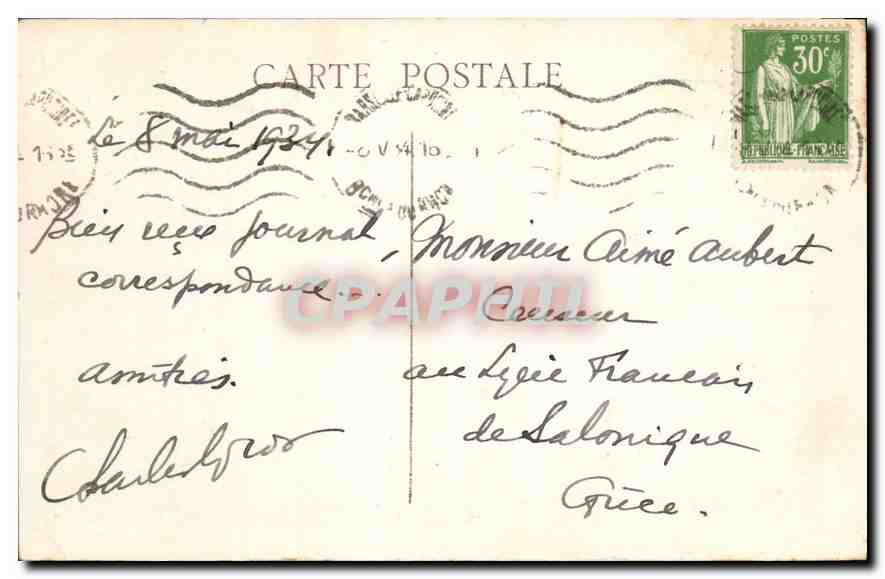 CARTE POSTALE
POSTES
30c
REPUBLIQUE FRANCAISE
Le 8 mai 1934.
Bien reçu journal,
correspondance...
amitiés.
Monsieur Aimé Aubert
Censeur
au Lycée Francais
de Salonique
Grèce.
CPAPHIL